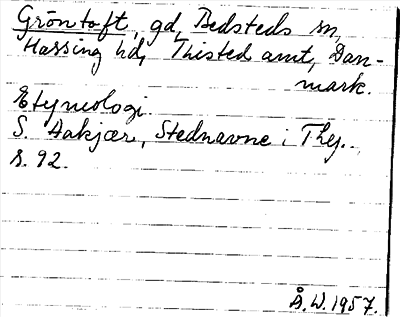 Gröntoft, gd, Bedsteds sn,
Hassing hd, Thisted amt, Dan-
mark.
Etymologi.
S. Aakjær, Stednavne i Thy.
s. 92.
Å. W. 1957.